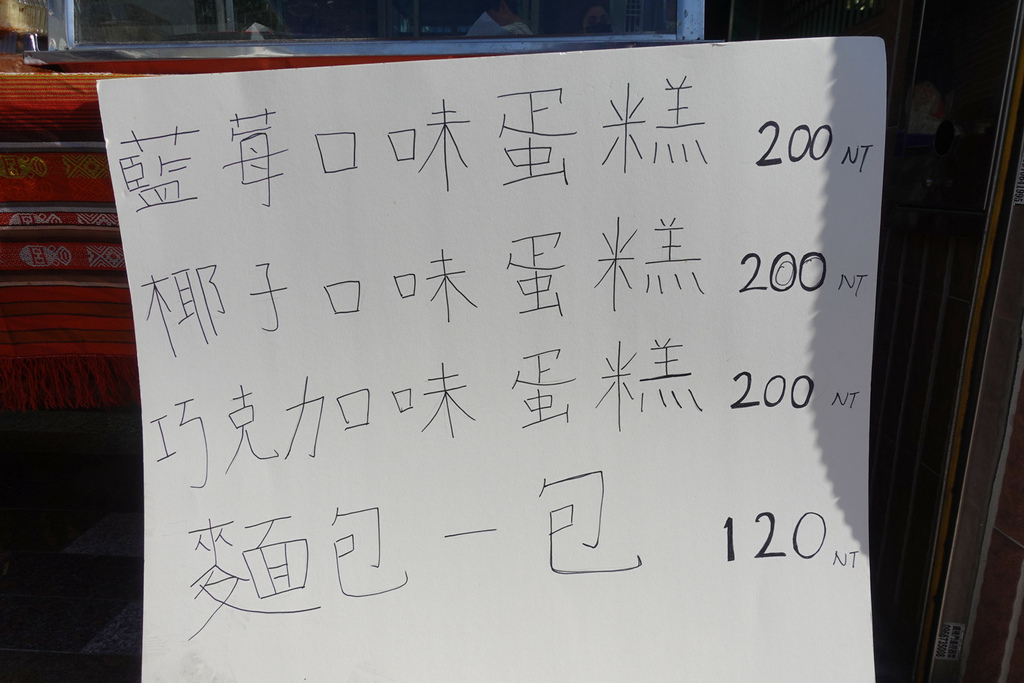 藍莓口味蛋糕 200 NT
椰子口味蛋糕 200 NT
巧克加味蛋糕 200 NT
麵包一包 120 NT